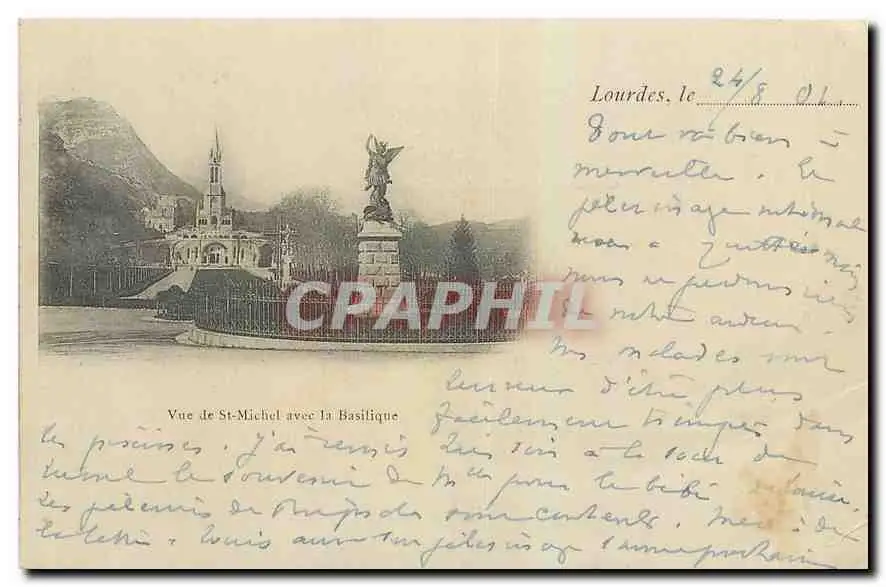 Lourdes, le 24/8 01.
Tout va bien à
merveille. Le
pèlerinage national
nous a quittés mais
nous ne perdons rien
de notre ardeur.
Nos malades sont
heureux d'être plus
facilement trempés dans
CAPHIL
Vue de St-Michel avec la Basilique
les piscines. J'ai remis lundi soir à la sœur du
le souvenir de Mlle pour le bébé
Les pèlerins de sont contents. Merci de
la lettre. pèlerinage l'année prochaine